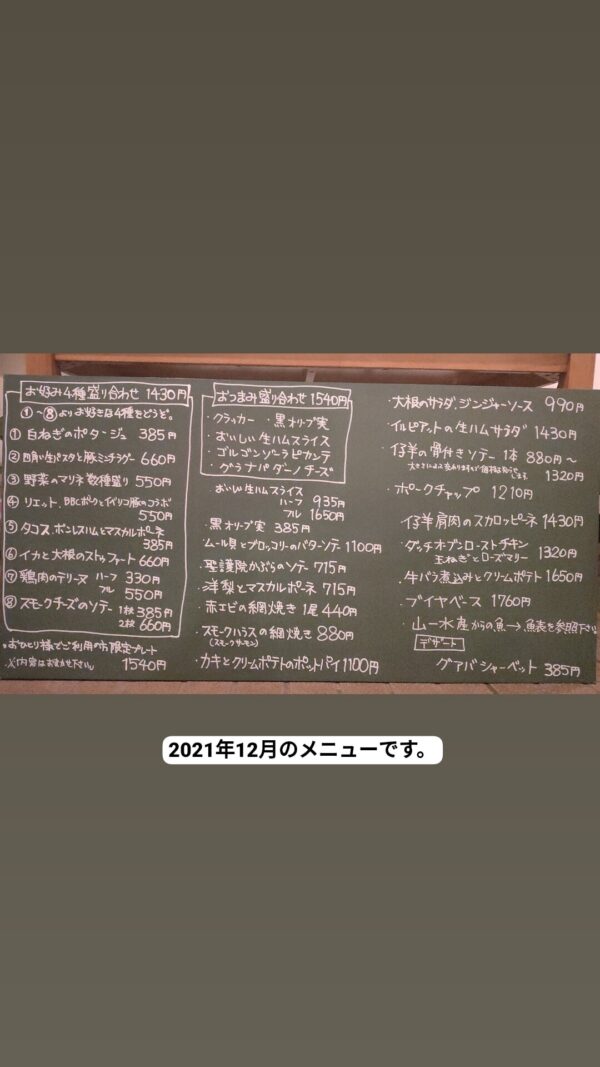 お好み4種盛り合わせ 1430円
①〜⑧よりお好きな4種をどうぞ。
① 白ねぎのポタージュ 385円
② 四角い生パスタと豚ミンチラグー 660円
③ 野菜のマリネ 数種盛り 550円
④ リエット、BBCポークとイベリコ豚のコラボ
550円
⑤ タコス、ボンレスハムとマスカルポーネ
385円
⑥ イカと大根のストゥファート 660円
⑦ 鶏肉のテリーヌ ハーフ 330円
フル 550円
⑧ スモークチーズのソテー 1枚 385円
2枚 660円
おひとり様でご利用の方限定プレート
※内容はおまかせ下さい。 1540円
おつまみ盛り合わせ 1540円
・クラッカー ・黒オリーブ実
・おいしい生ハムスライス
・ゴルゴンゾーラピカンテ
・グラナパダーノチーズ
おいしい生ハムスライス
ハーフ 935円
フル 1650円
・黒オリーブ実 385円
・ムール貝とブロッコリーのバターソテー 1100円
・聖護院かぶらのソテー 715円
・洋梨とマスカルポーネ 715円
・赤エビの網焼き 1尾 440円
・スモークハラスの網焼き 880円
(スモークサーモン)
・カキとクリームポテトのポットパイ 1100円
・大根のサラダ、ジンジャーソース 990円
・イルピアットの生ハムサラダ 1430円
・仔羊の骨付きソテー 1本 880円〜
1320円
・ポークチャップ 1210円
・仔羊肩肉のスカロッピーネ 1430円
・ダッチオーブンローストチキン
玉ねぎとローズマリー 1320円
・牛バラ煮込みとクリームポテト 1650円
・ブイヤベース 1760円
・山一水産からの魚→魚表を参照下さい
デザート
グアバシャーベット 385円
2021年12月のメニューです。